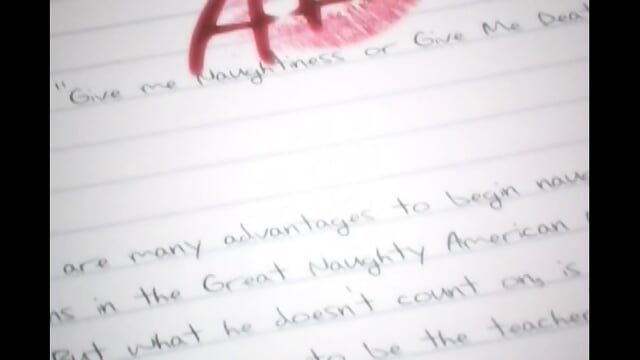 A+
"Give me Naughtiness or Give Me Dea
are many advantages to begin nau
ns in the Great Naughty American
But what he doesn't count on, is
to be the teache